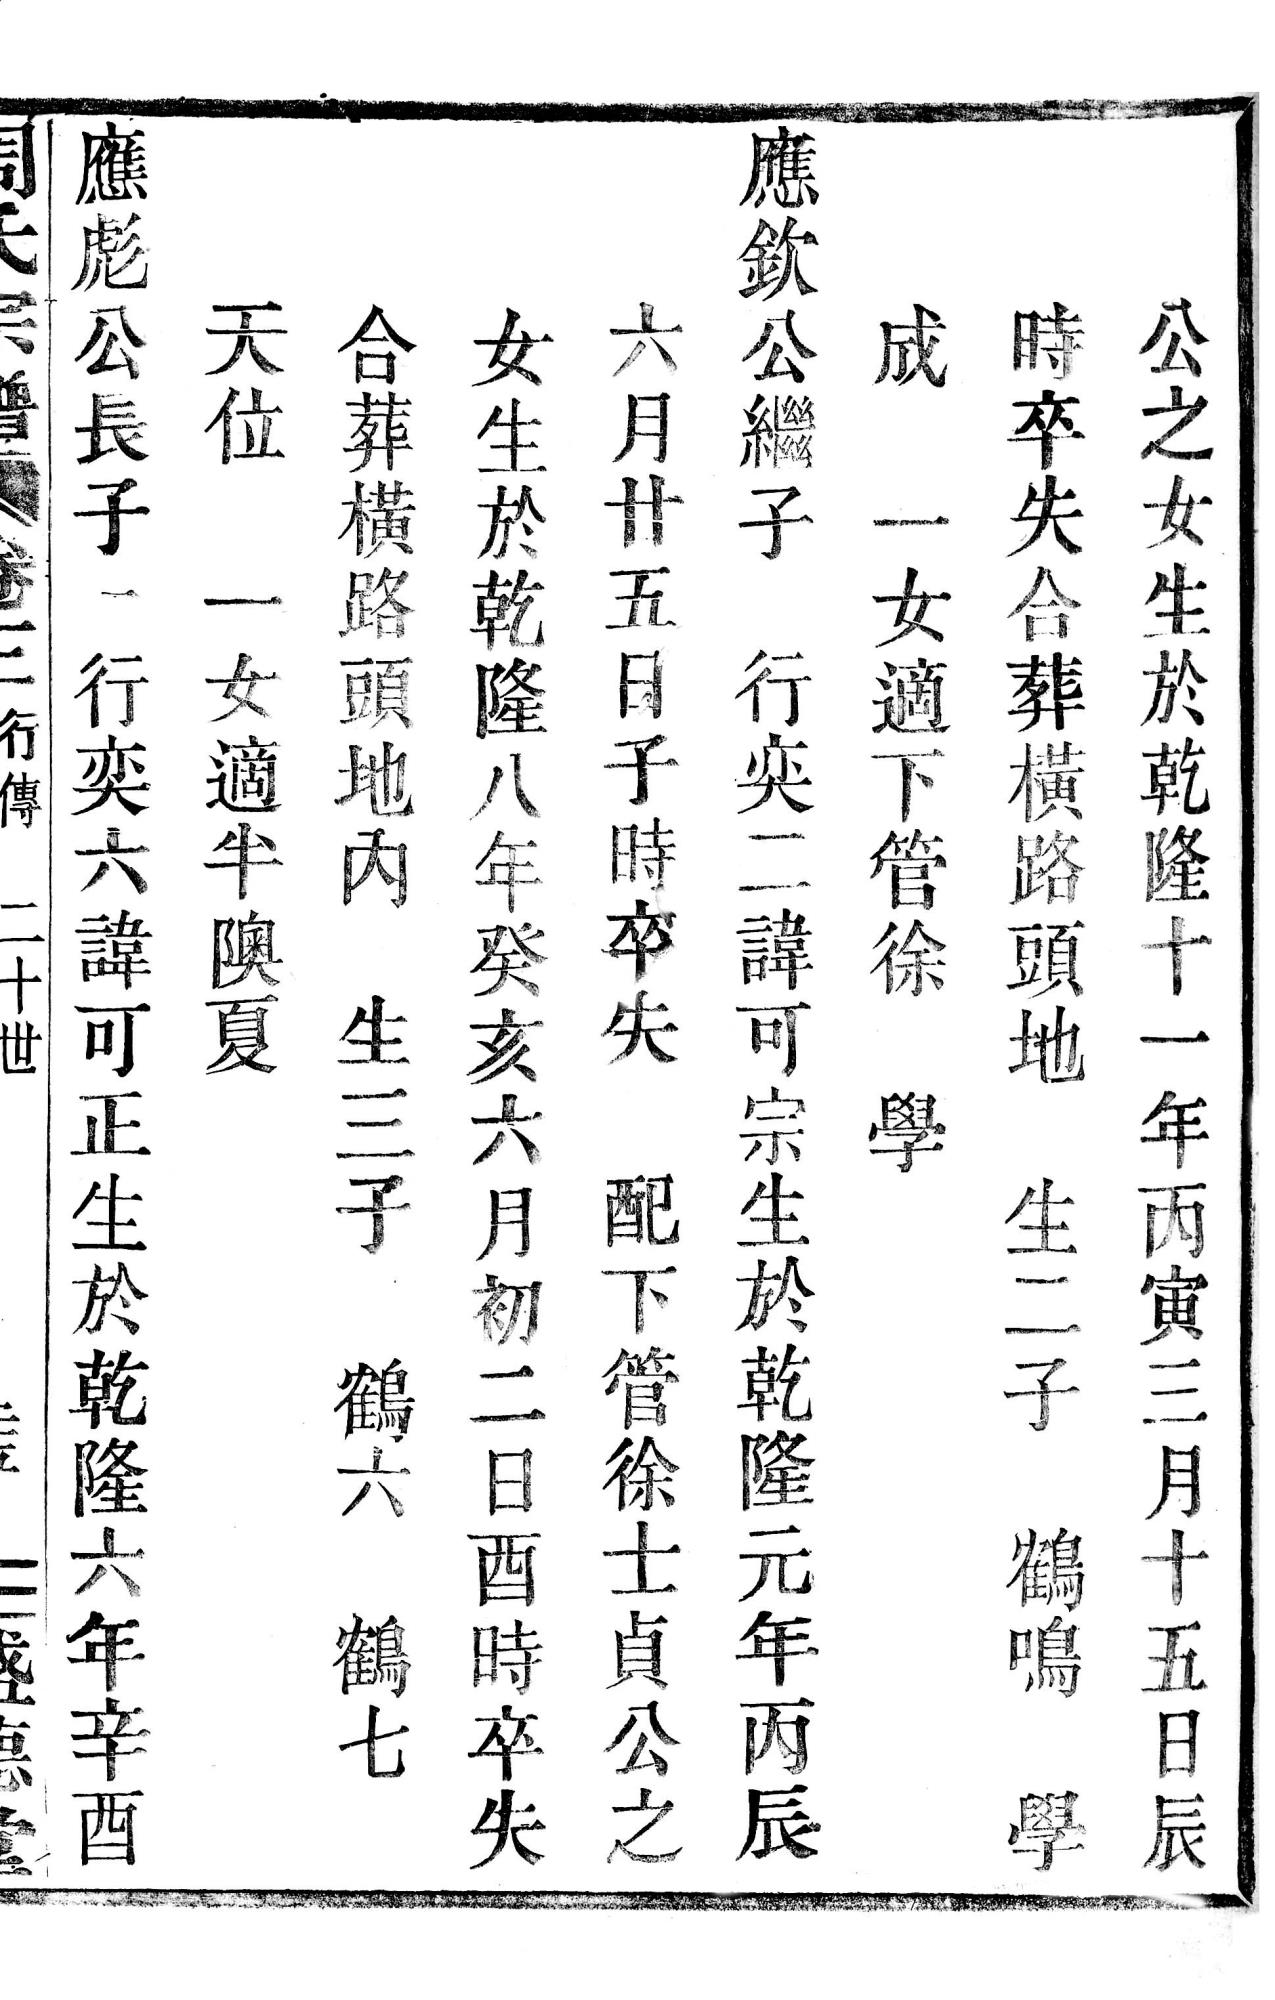 公之女生於乾隆十一年丙寅三月十五日辰
時卒失合葬橫路頭地　生二子　鶴鳴　學
成　一女適下管徐　學
應欽公繼子　行奕二諱可宗生於乾隆元年丙辰
六月廿五日子時卒失　配下管徐士貞公之
女生於乾隆八年癸亥六月初二日酉時卒失
合葬橫路頭地內　生三子　鶴六　鶴七
天位　一女適半隩夏
應彪公長子一行奕六諱可正生於乾隆六年辛酉
周氏宗譜　卷二　行傳　二十世　盛德堂